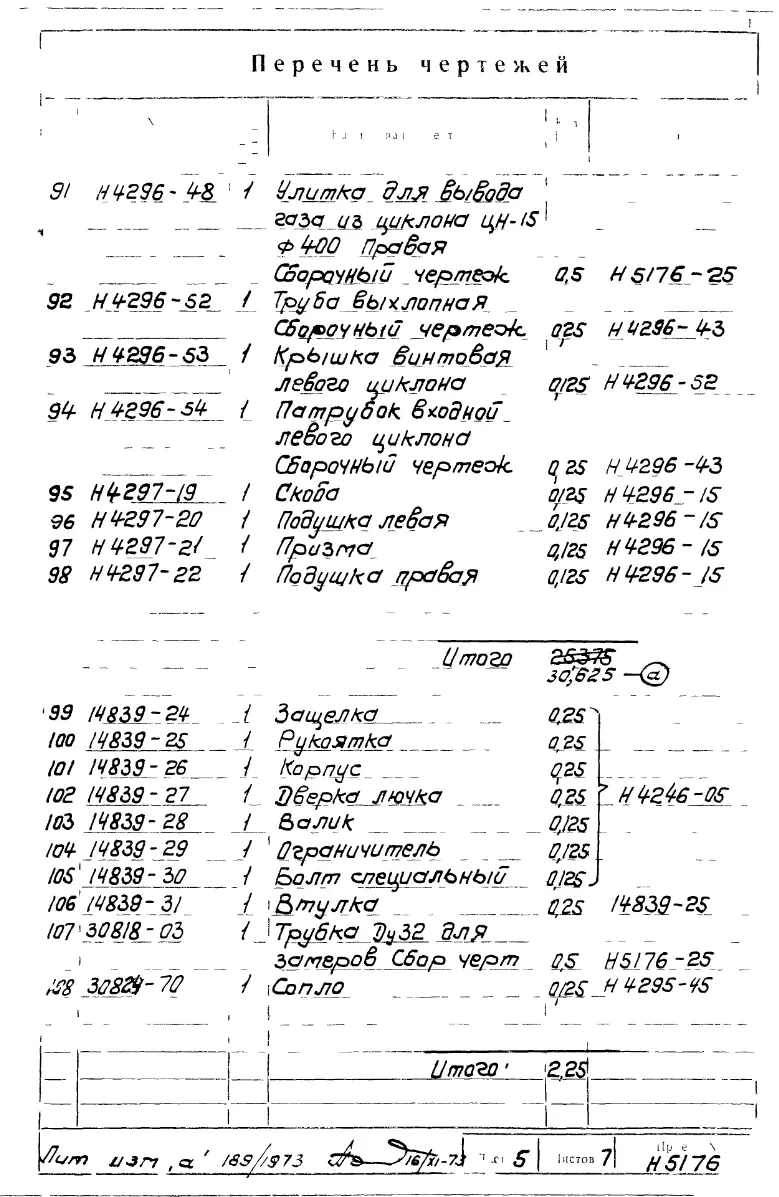 Перечень чертежей
91 Н4296-48 1 Улитка для вывода
газа из циклона ЦН-15
Ф400 Правая
Сборочный чертеж 0,5 Н5176-25
92 Н4296-52 1 Труба выхлопная
Сборочный чертеж 0,25 Н4296-43
93 Н4296-53 1 Крышка винтовая
левого циклона 0,125 Н4296-52
94 Н4296-54 1 Патрубок входной
левого циклона
Сборочный чертеж 0,25 Н4296-43
95 Н4297-19 1 Скоба 0,125 Н4296-15
96 Н4297-20 1 Подушка левая 0,125 Н4296-15
97 Н4297-21 1 Призма 0,125 Н4296-15
98 Н4297-22 1 Подушка правая 0,125 Н4296-15
Итого
30,625 а
99 14839-24 1 Защелка 0,25
100 14839-25 1 Рукоятка 0,25
101 14839-26 1 Корпус 0,25
102 14839-27 1 Дверка лючка 0,25 Н4246-05
103 14839-28 1 Валик 0,125
104 14839-29 1 Ограничитель 0,125
105 14839-30 1 Болт специальный 0,125
106 14839-31 1 Втулка 0,25 14839-25
107 30818-03 1 Трубка Ду32 для
замеров Сбор черт 0,5 Н5176-25
108 30824-70 1 Сопло 0,125 Н4295-45
Итого 2,25
Лит изм "а" 189/1973 16/XI-73 5 Листов 7 Н5176